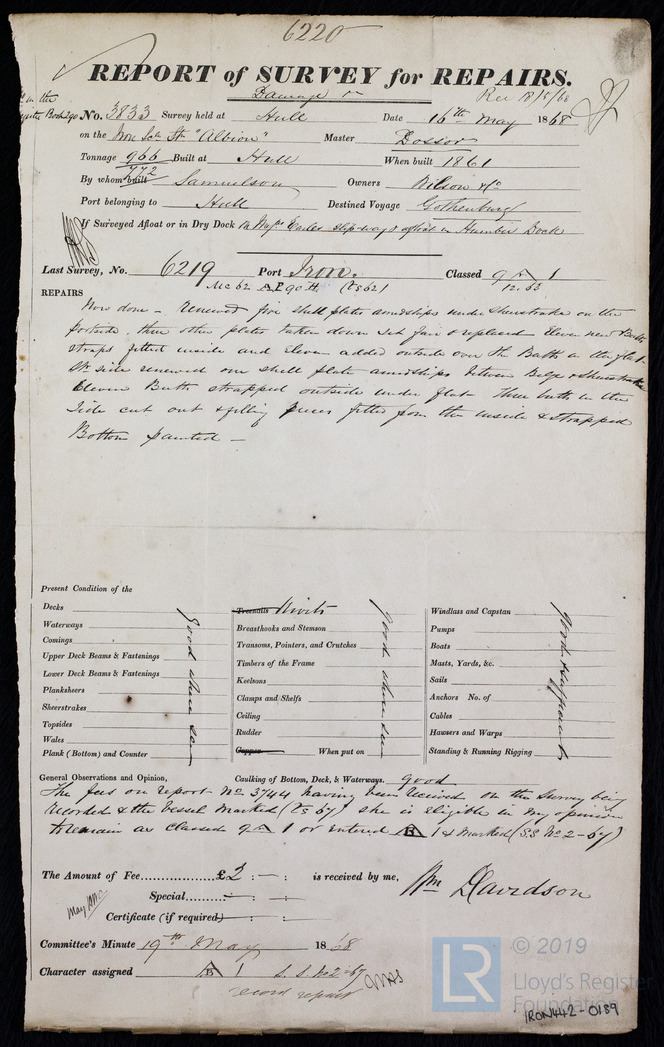 6220
REPORT of SURVEY for REPAIRS.
Damage
Rec 18/5/68
in the
No. 3833 Survey held at Hull Date 16th May 1868
on the Iron Scw Sr "Albion" Master Dossor
Tonnage 966 Built at Hull When built 1861
772
By whom built Samuelson Owners Wilson &Co
Port belonging to Hull Destined Voyage Gothenburg
If Surveyed Afloat or in Dry Dock On Messrs Earles Slipway & afloat in Humber Dock
Last Survey, No. 6219 Port Iron. Classed 9 A 1
Mc 62 A.P. 90 H. (Ts 62) 12, 63
REPAIRS
Now done - Renewed five shell plates amidships under Sheerstrake on the
portside, three other plates taken down set fair & replaced Eleven new Butt
straps fitted inside and Eleven added outside over the Butts in the flat
side renewed one shell plate amidships between bilge & sheerstrake
Eleven Butts strapped outside under flat Three butts in the
Side cut out & filling pieces fitted from the inside & strapped
Bottom painted -
Present Condition of the
Decks
Waterways
Comings
Upper Deck Beams & Fastenings
Lower Deck Beams & Fastenings
Planksheers
Sheerstrakes
Topsides
Wales
Plank (Bottom) and Counter
Good where seen
Treenails Rivets
Breasthooks and Stemson
Transoms, Pointers, and Crutches
Timbers of the Frame
Keelsons
Clamps and Shelfs
Ceiling
Rudder
Copper When put on
Good where seen
Windlass and Capstan
Pumps
Boats
Masts, Yards, &c.
Sails
Anchors No. of
Cables
Hawsers and Warps
Standing & Running Rigging
Good & efficient
General Observations and Opinion, Caulking of Bottom, Deck, & Waterways. good
The fees on report No 3744 having been received on the Survey being
recorded & the vessel marked (Ts 67) she is eligible in my opinion
to remain as classed 9 A 1 or entered A 1 & marked (S.S. No 2-67)
The Amount of Fee £2 : - : is received by me,
Wm Davidson
Special - : - :
Certificate (if required) - : - :
Committee's Minute 19th May 1868
Character assigned A 1 S.S. No 2-67
record repairs
LR
© 2019
Lloyd's Register
Foundation
IRON442-0189